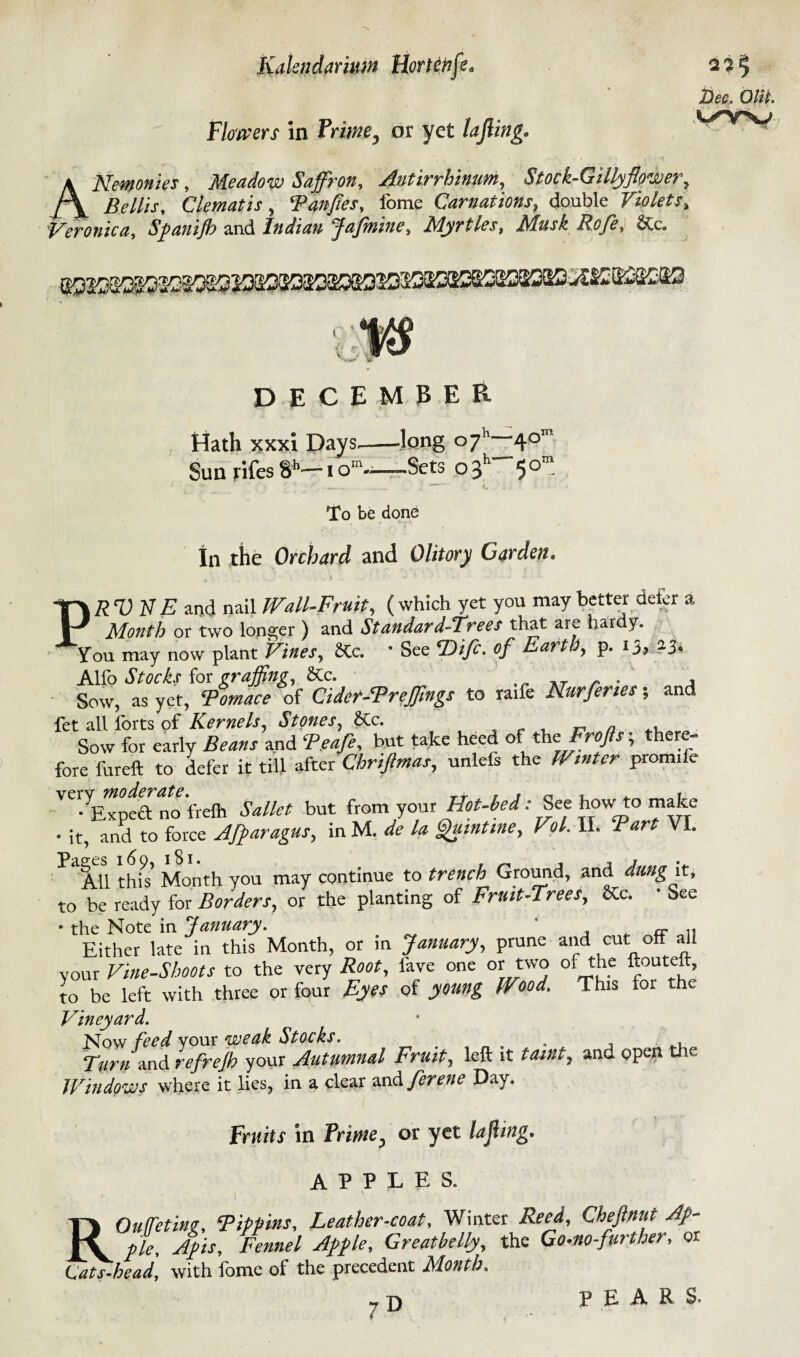 Kalendarium Hortenſe. 225
Dec. Olit.
Flowers in Prime, or yet laſting.
ANemonies, Meadow Saffron, Antirrhinum, Stock-Gillyflower,
Bellis, Clematis, Panſies, ſome Carnations, double Violets,
Veronica, Spaniſh and Indian Jaſmine, Myrtles, Musk Roſe, &c.
♑
DECEMBER
Hath xxxi Days——long 07ʰ—40ᵐ
Sun riſes 8ʰ—10ᵐ——Sets 03ʰ—50ᵐ.
To be done
In the Orchard and Olitory Garden.
PRUNE and nail Wall-Fruit, (which yet you may better defer a
Month or two longer) and Standard-Trees that are hardy.
You may now plant Vines, &c. * See Diſc. of Earth, p. 13, 23.
Alſo Stocks for graffing, &c.
Sow, as yet, Pomace of Cider-Preſſings to raiſe Nurſeries; and
ſet all ſorts of Kernels, Stones, &c.
Sow for early Beans and Peaſe, but take heed of the Froſts; there-
fore ſureſt to defer it till after Chriſtmas, unleſs the Winter promiſe
very moderate.
* Expect no freſh Sallet but from your Hot-bed: See how to make
* it, and to force Aſparagus, in M. de la Quintine, Vol. II. Part VI.
Pages 169, 181.
All this Month you may continue to trench Ground, and dung it,
to be ready for Borders, or the planting of Fruit-Trees, &c. * See
* the Note in January.
Either late in this Month, or in January, prune and cut off all
your Vine-Shoots to the very Root, ſave one or two of the ſtouteſt,
to be left with three or four Eyes of young Wood. This for the
Vineyard.
Now feed your weak Stocks.
Turn and refreſh your Autumnal Fruit, leſt it taint, and open the
Windows where it lies, in a clear and ſerene Day.
Fruits in Prime, or yet laſting.
APPLES.
ROuſſeting, Pippins, Leather-coat, Winter Reed, Cheſtnut Ap-
ple, Apis, Fennel Apple, Greatbelly, the Go-no-further, or
Cats-head, with ſome of the precedent Month.
7 D PEARS.